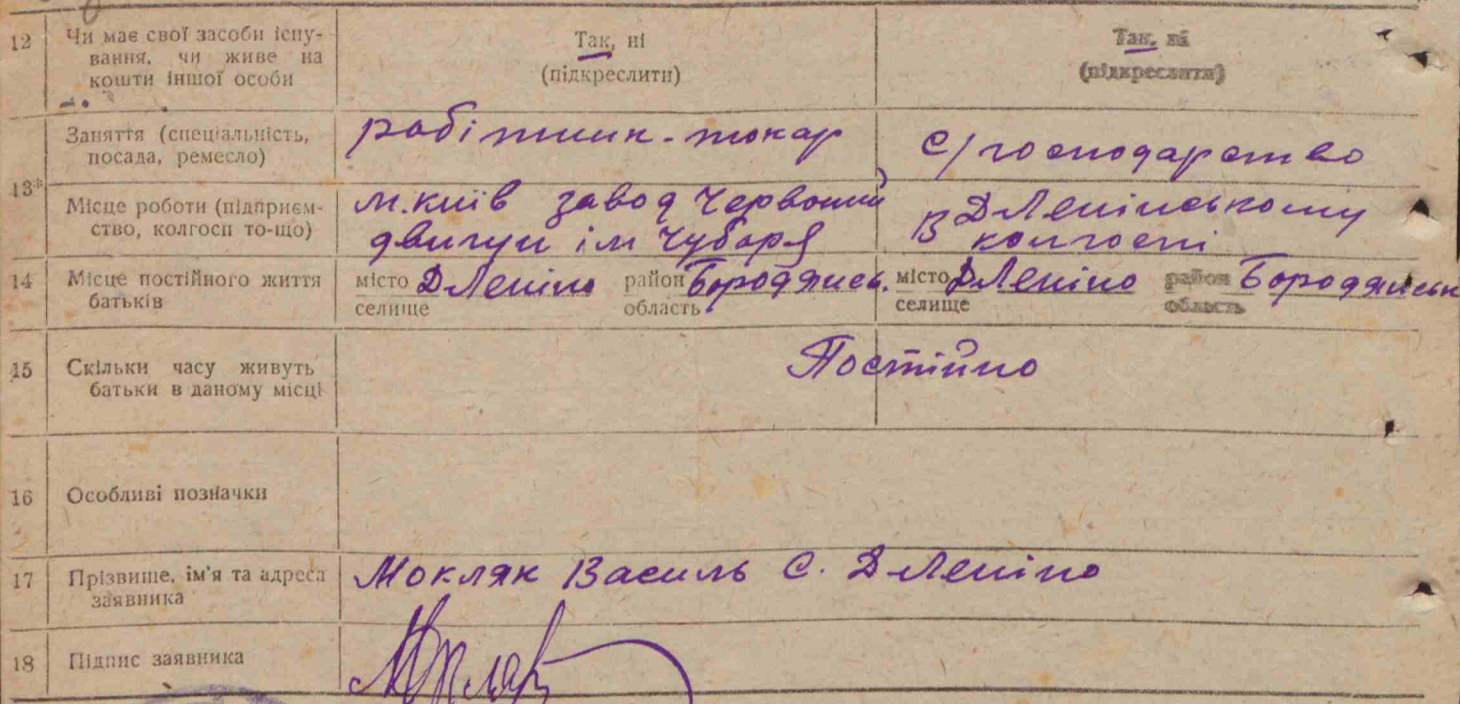 12 Чи має свої засоби існу-
вання, чи живе на
кошти іншої особи
Так, ні
(підкреслити)
Так, ні
(підкреслити)
13*
Заняття (спеціальність,
посада, ремесло)
робітник-токар
с/господарство
Місце роботи (підприєм-
ство, колгосп то-що)
м.Київ завод Червоний
двигун ім Чубаря
в Д Ленінському
колгоспі
14 Місце постійного життя
батьків
місто Д-Леніно район Бородянсь.
селище область
місто Д Леніно район Бородянськ
селище область
15 Скільки часу живуть
батьки в даному місці
Постійно
16 Особливі позначки
17 Прізвище, ім'я та адреса
заявника
Мокляк Василь С. Д-Леніно
18 Підпис заявника